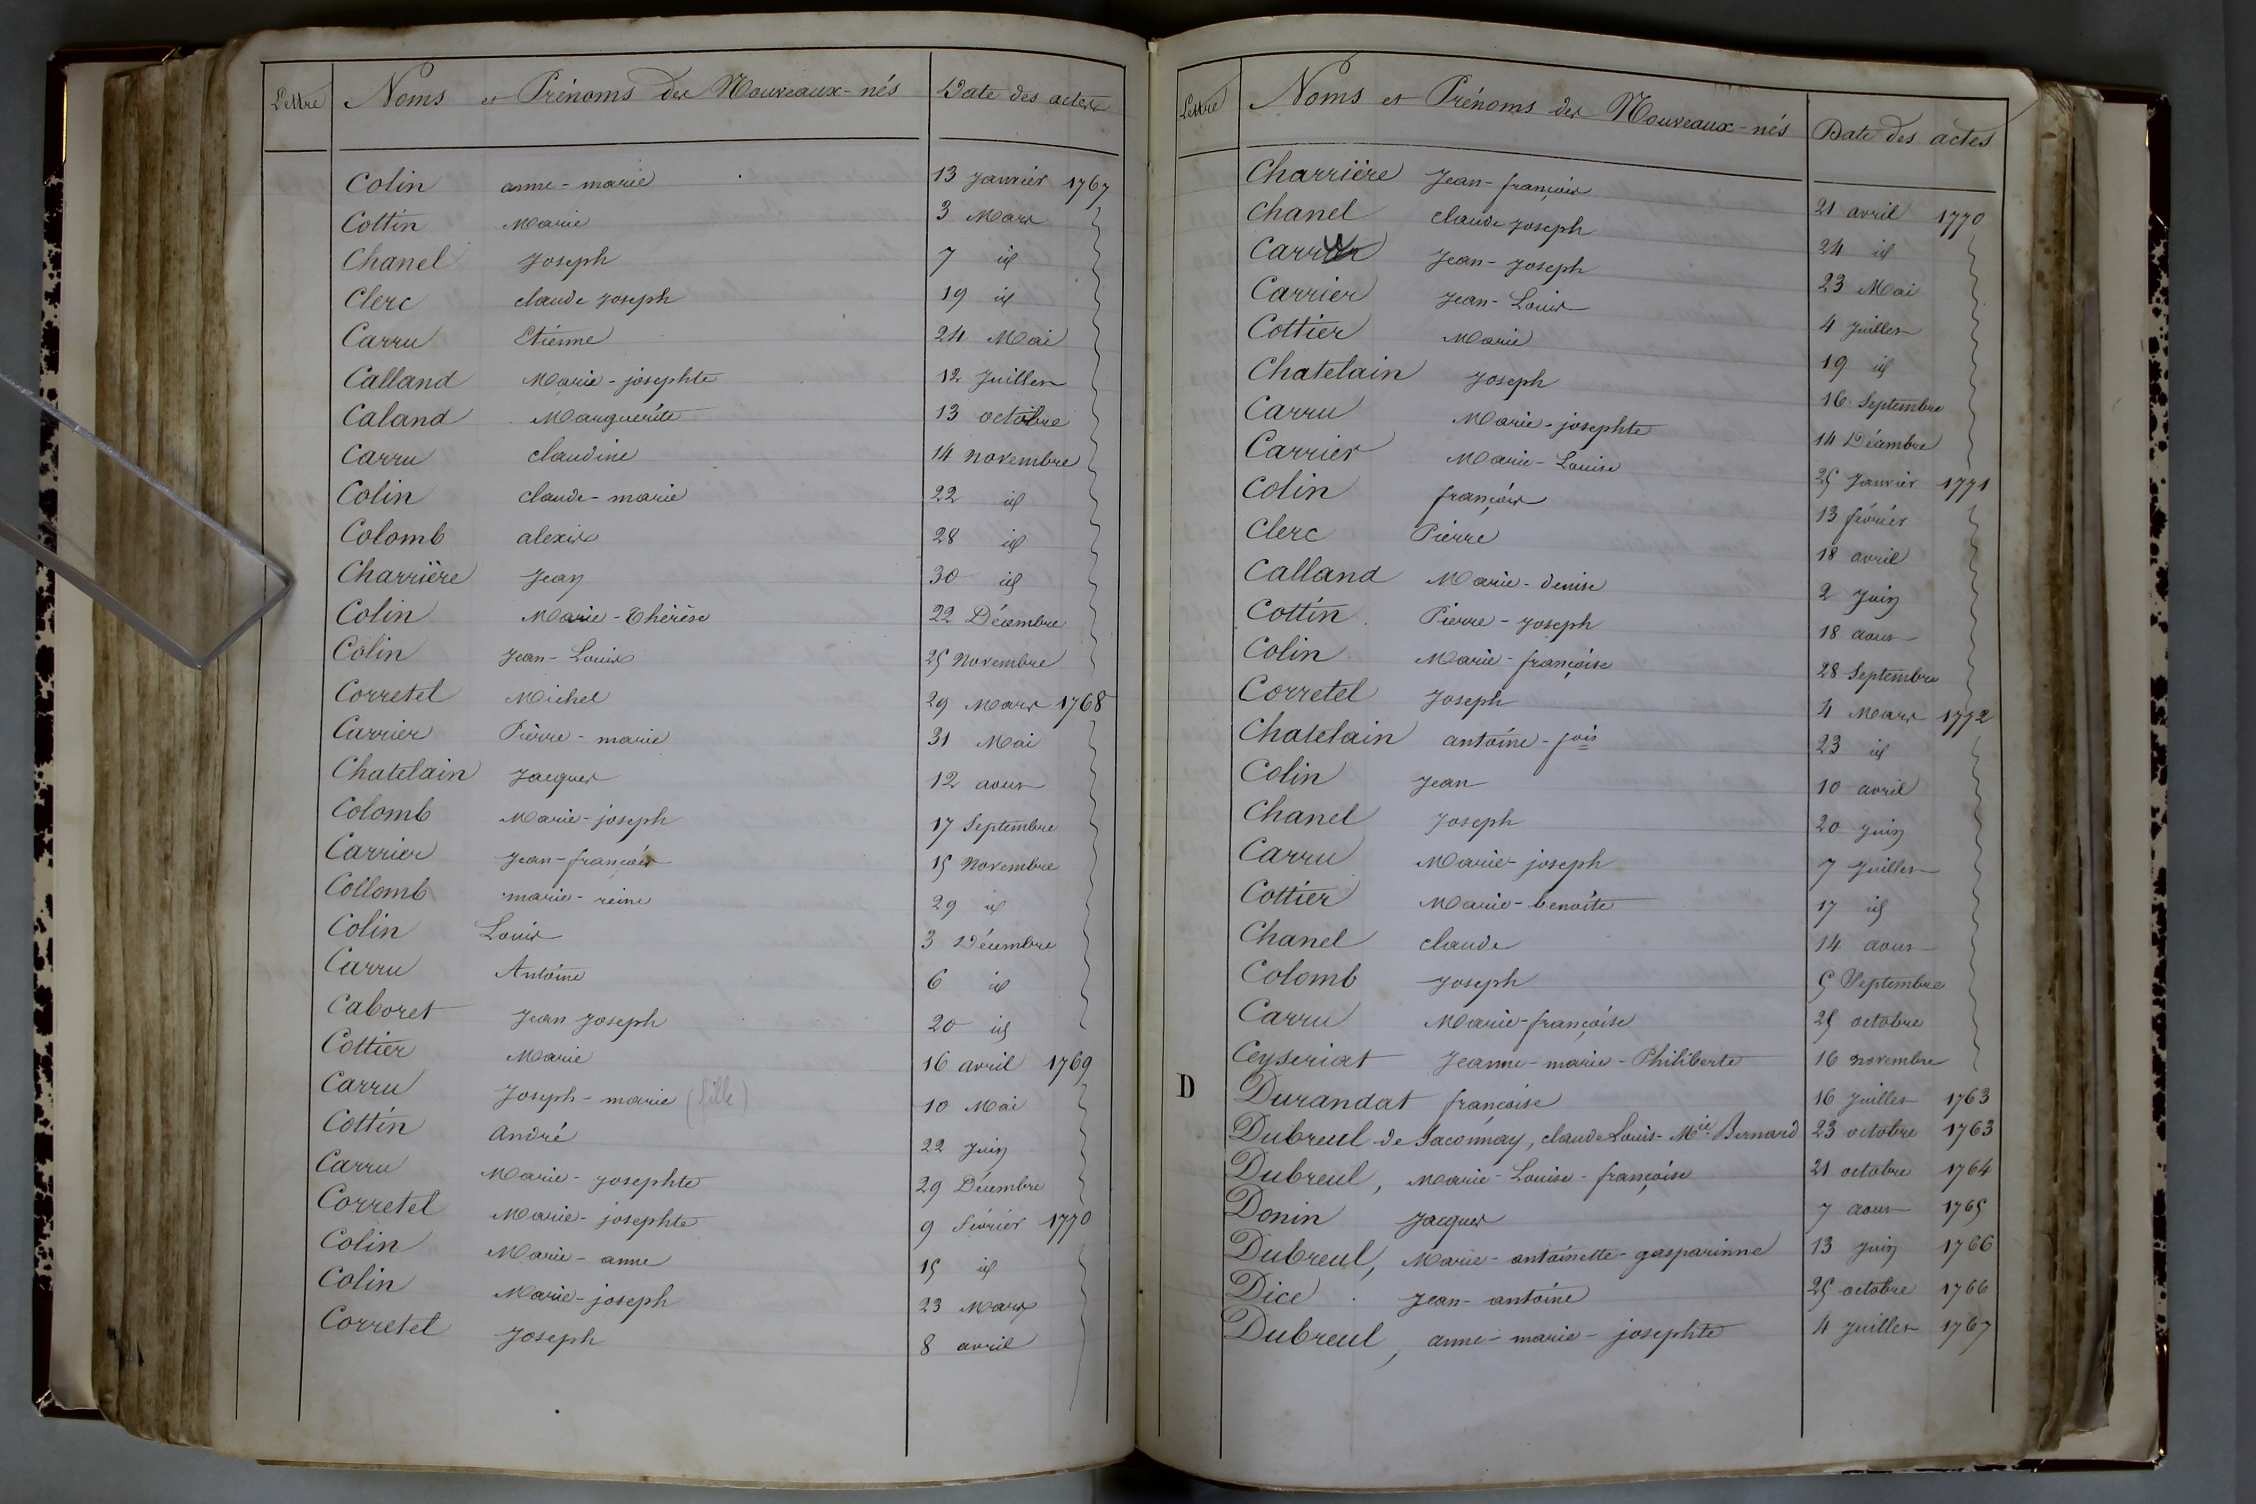 Lettre Noms et Prénoms des Nouveaux-nés Date des actes
Colin anne-marie 13 Janvier 1767
Cottin Marie 3 Mars
Chanel Joseph 7 id
Clerc claude Joseph 19 id
Carru Etienne 24 Mai
Calland Marie-josephte 12 Juillet
Caland Marguerite 13 octobre
Carru claudine 14 novembre
Colin claude-marie 22 id
Colomb alexis 28 id
Charrière Jean 30 id
Colin Marie-Thérèse 22 Décembre
Colin Jean-Louis 25 Novembre
Corretel Michel 29 Mars 1768
Carrier Pierre-marie 31 Mai
Chatelain Jacques 12 aout
Colomb Marie-joseph 17 Septembre
Carrier Jean-françois 15 Novembre
Collomb marie-reine 29 id
Colin Louis 3 Décembre
Carru Antoine 6 id
Caboret Jean Joseph 20 id
Cottier Marie 16 avril 1769
Carru Joseph-marie (fille) 10 Mai
Cottin andré 22 Juin
Carru Marie-Josephte 29 Décembre
Corretel Marie-josephte 9 Février 1770
Colin Marie-anne 15 id
Colin Marie-joseph 23 Mars
Corretel Joseph 8 avril
Lettre Noms et Prénoms des Nouveaux-nés Date des actes
Charrière Jean-françois 21 avril 1770
Chanel claude Joseph 24 id
Jean-Joseph 23 Mai
Carrier Jean-Louis 4 Juillet
Cottier Marie 19 id
Chatelain Joseph 16 Septembre
Carru Marie-josephte 14 Décembre
Carrier Marie-Louise 25 Janvier 1771
Colin françois 13 février
Clerc Pierre 18 avril
Calland Marie-denise 2 Juin
Cottin Pierre-Joseph 18 aout
Colin Marie-françoise 28 Septembre
Corretel Joseph 4 Mars 1772
Chatelain antoine-fois 23 id
Colin Jean 10 avril
Chanel Joseph 20 Juin
Carru Marie-joseph 7 Juillet
Cottier Marie-benoite 17 id
Chanel claude 14 aout
Colomb Joseph 5 Septembre
Carru Marie-françoise 25 octobre
Ceyseriat Jeanne-marie-Philiberte 16 novembre
D Durandat françoise 16 Juillet 1763
Dubreul de Saconnay, claude Louis-Mie Bernard 23 octobre 1763
Dubreul, Marie-Louise-françoise 21 octobre 1764
Donin Jacques 7 aout 1765
Dubreul, Marie-antoinette-gasparinne 13 Juin 1766
Dice Jean-antoine 25 octobre 1766
Dubreul, anne-marie-josephte 4 Juillet 1767